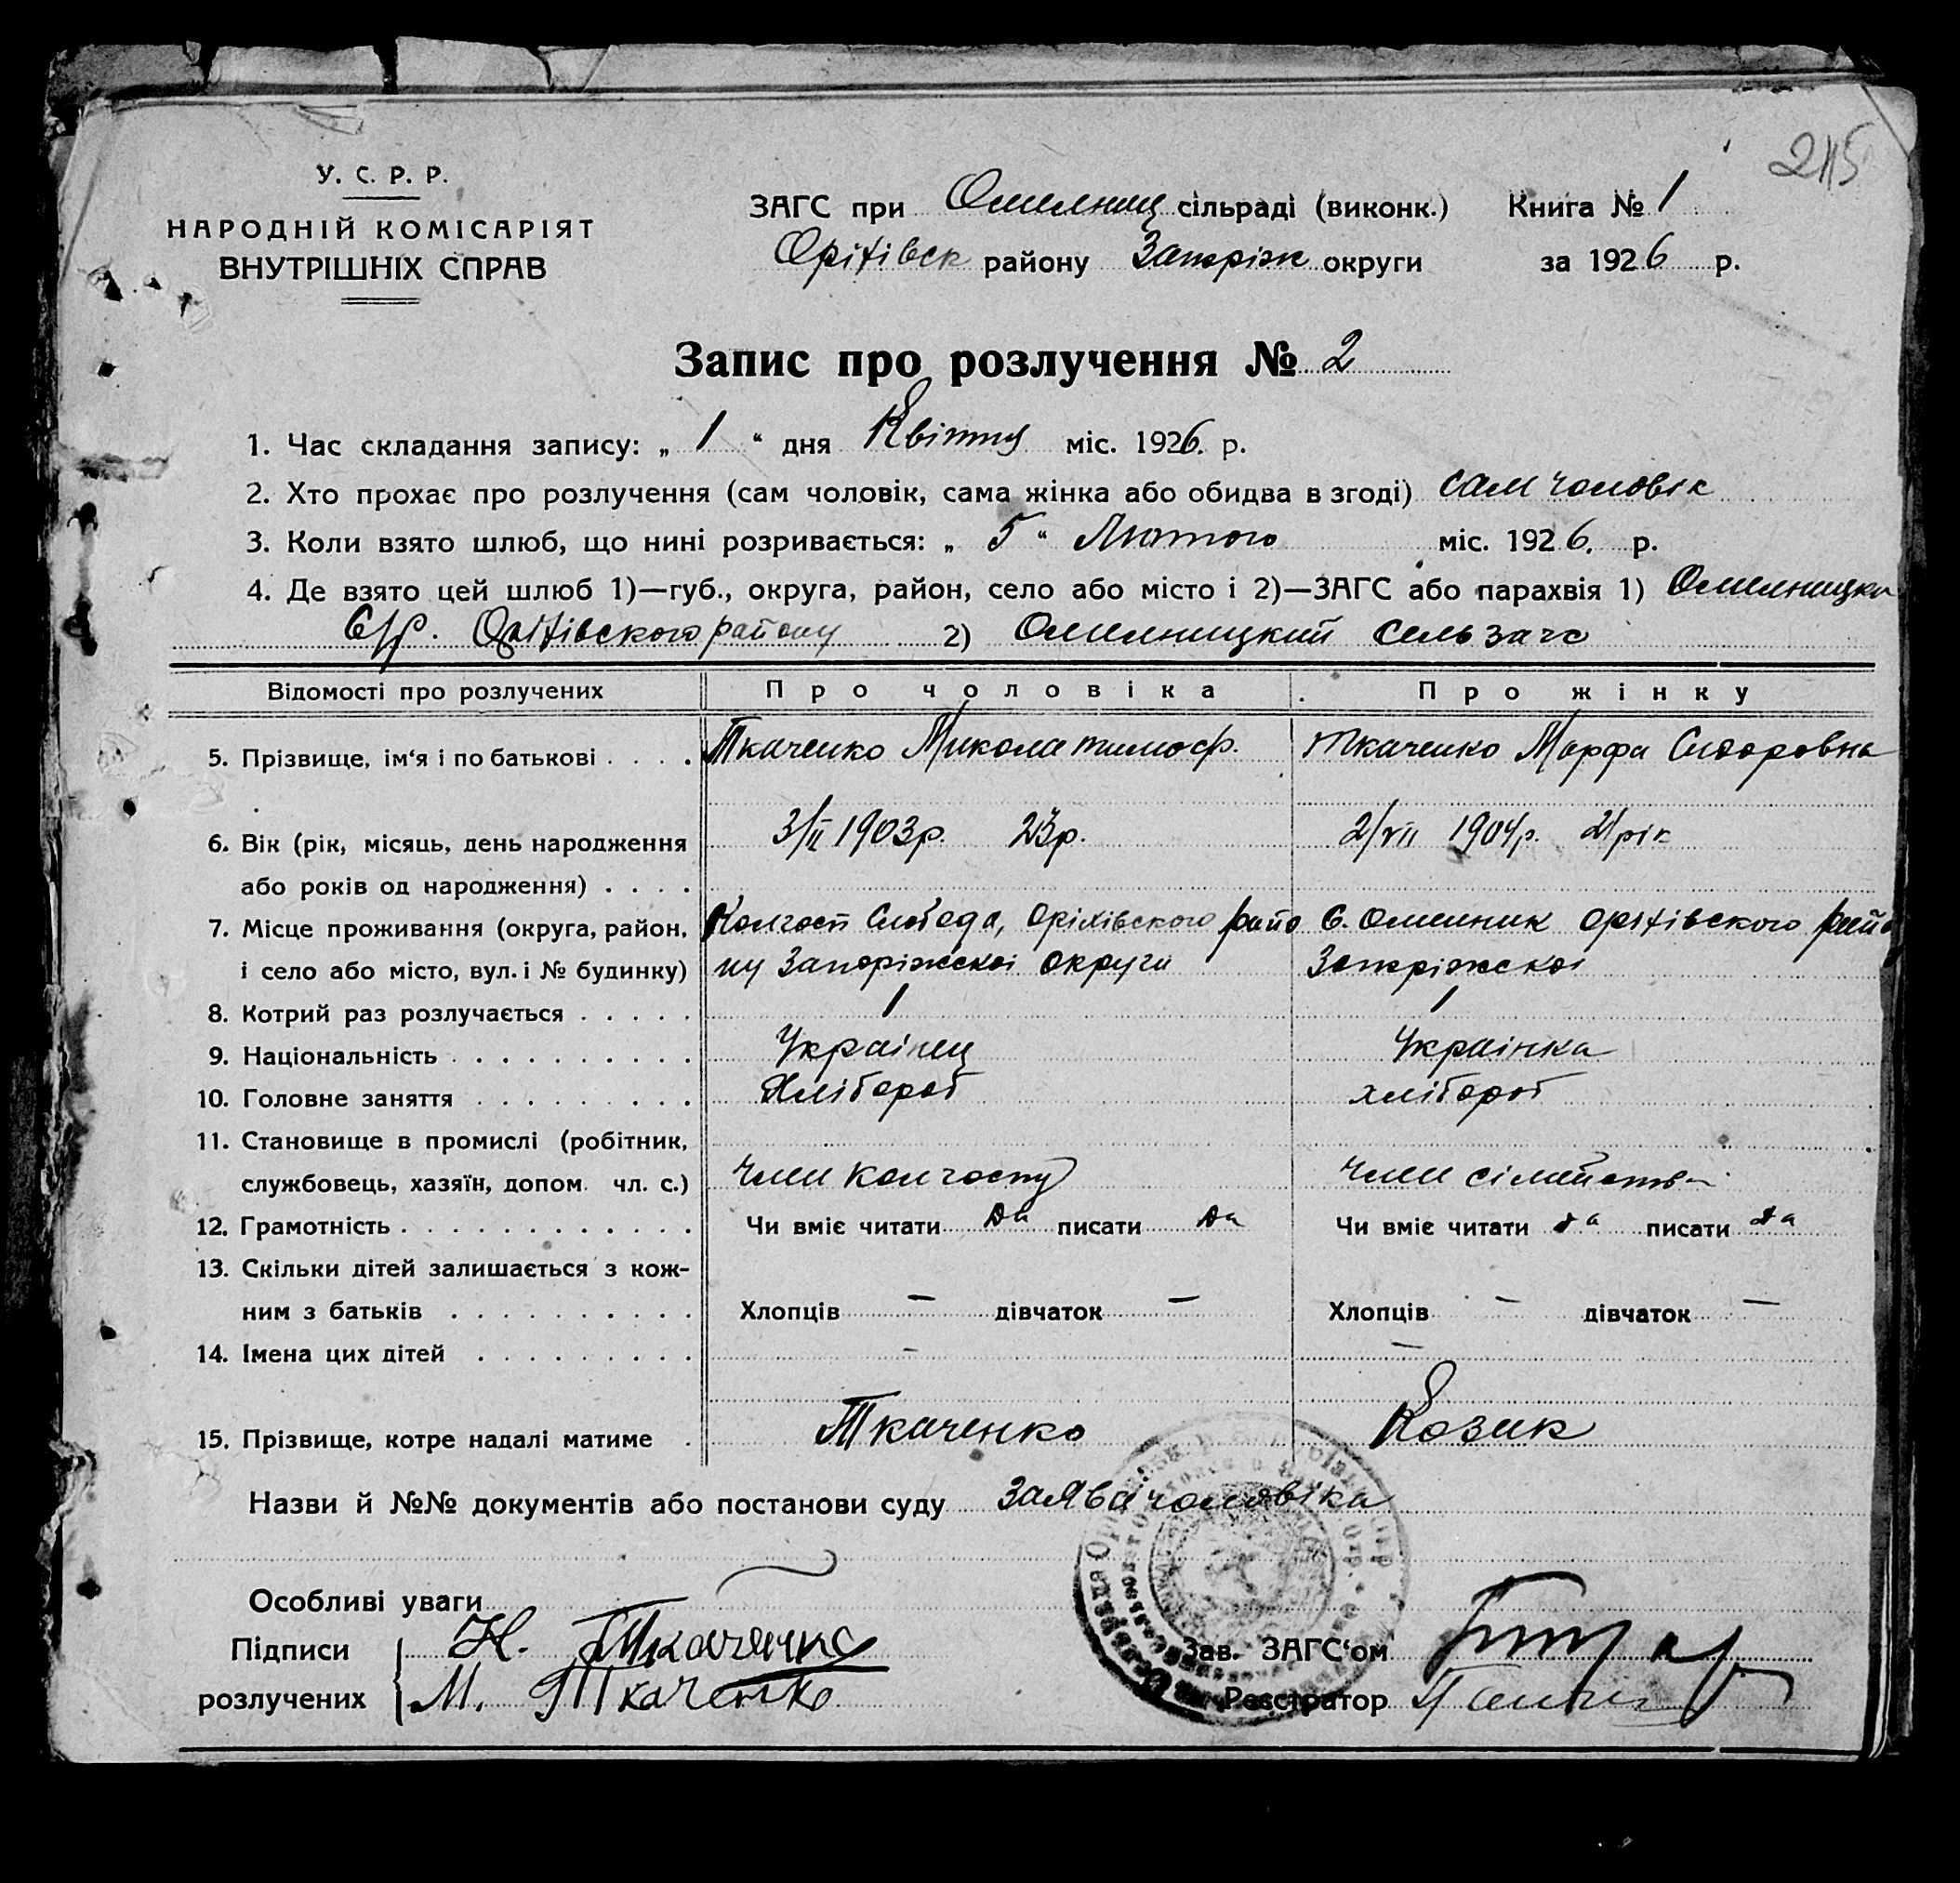 215
У. С. Р. Р.
НАРОДНІЙ КОМІСАРІЯТ
ВНУТРІШНІХ СПРАВ
ЗАГС при Омелниц сільраді (виконк.) Книга № 1
Оріхівск району Запоріж округи за 1926 р.
Запис про розлучення № 2
1. Час складання запису: „ 1 “ дня Квітня міс. 1926. р.
2. Хто прохає про розлучення (сам чоловік, сама жінка або обидва в згоді) сам чоловік
3. Коли взято шлюб, що нині розривається: „ 5 “ Лютого міс. 1926. р.
4. Де взято цей шлюб 1)—губ., округа, район, село або місто і 2)—ЗАГС або парахвія 1) Омелницка
С/р. Оріхівского району 2) Омелницкий сельзагс
Відомості про розлучених Про чоловіка Про жінку
5. Прізвище, ім‘я і по батькові . . . . Ткаченко Микола тимоф. Ткаченко Марфа Сидоровна
6. Вік (рік, місяць, день народження 3/II 1903р. 23р. 2/VII 1904р. 21рік
або років од народження) . . . .
7. Місце проживання (округа, район, Колгосп Слобода, Оріхівского райо С. Омелник Оріхівского райо
і село або місто, вул. і № будинку) ну Запоріжскоі округи Запоріжскоі
8. Котрий раз розлучається . . . . . 1 1
9. Національність . . . . . . . . . . Украінец Украінка
10. Головне заняття . . . . . . . . . Хлібороб хлібороб
11. Становище в промислі (робітник,
службовець, хазяїн, допом. чл. с.) Член колгоспу Член сімейства
12. Грамотність . . . . . . . . . . . . Чи вміє читати да писати да Чи вміє читати да писати да
13. Скільки дітей залишається з кож-
ним з батьків . . . . . . . . . . Хлопців — дівчаток — Хлопців — дівчаток —
14. Імена цих дітей . . . . . . . . . — —
15. Прізвище, котре надалі матиме . Ткаченко Козик
Назви й №№ документів або постанови суду заява чоловіка
Особливі уваги
Підписи Н. Ткаченко Зав. ЗАГС‘ом
розлучених М. Ткаченко Реєстратор